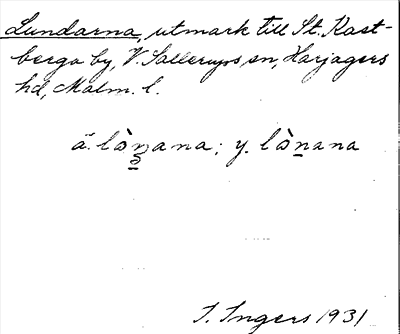 Lundarna, utmark till St. Kast-
berga by, V. Sallerups sn, Harjagers
hd, Malm. l.
ä. lòn̠ana; y. lòn̠ana
I. Ingers 1931